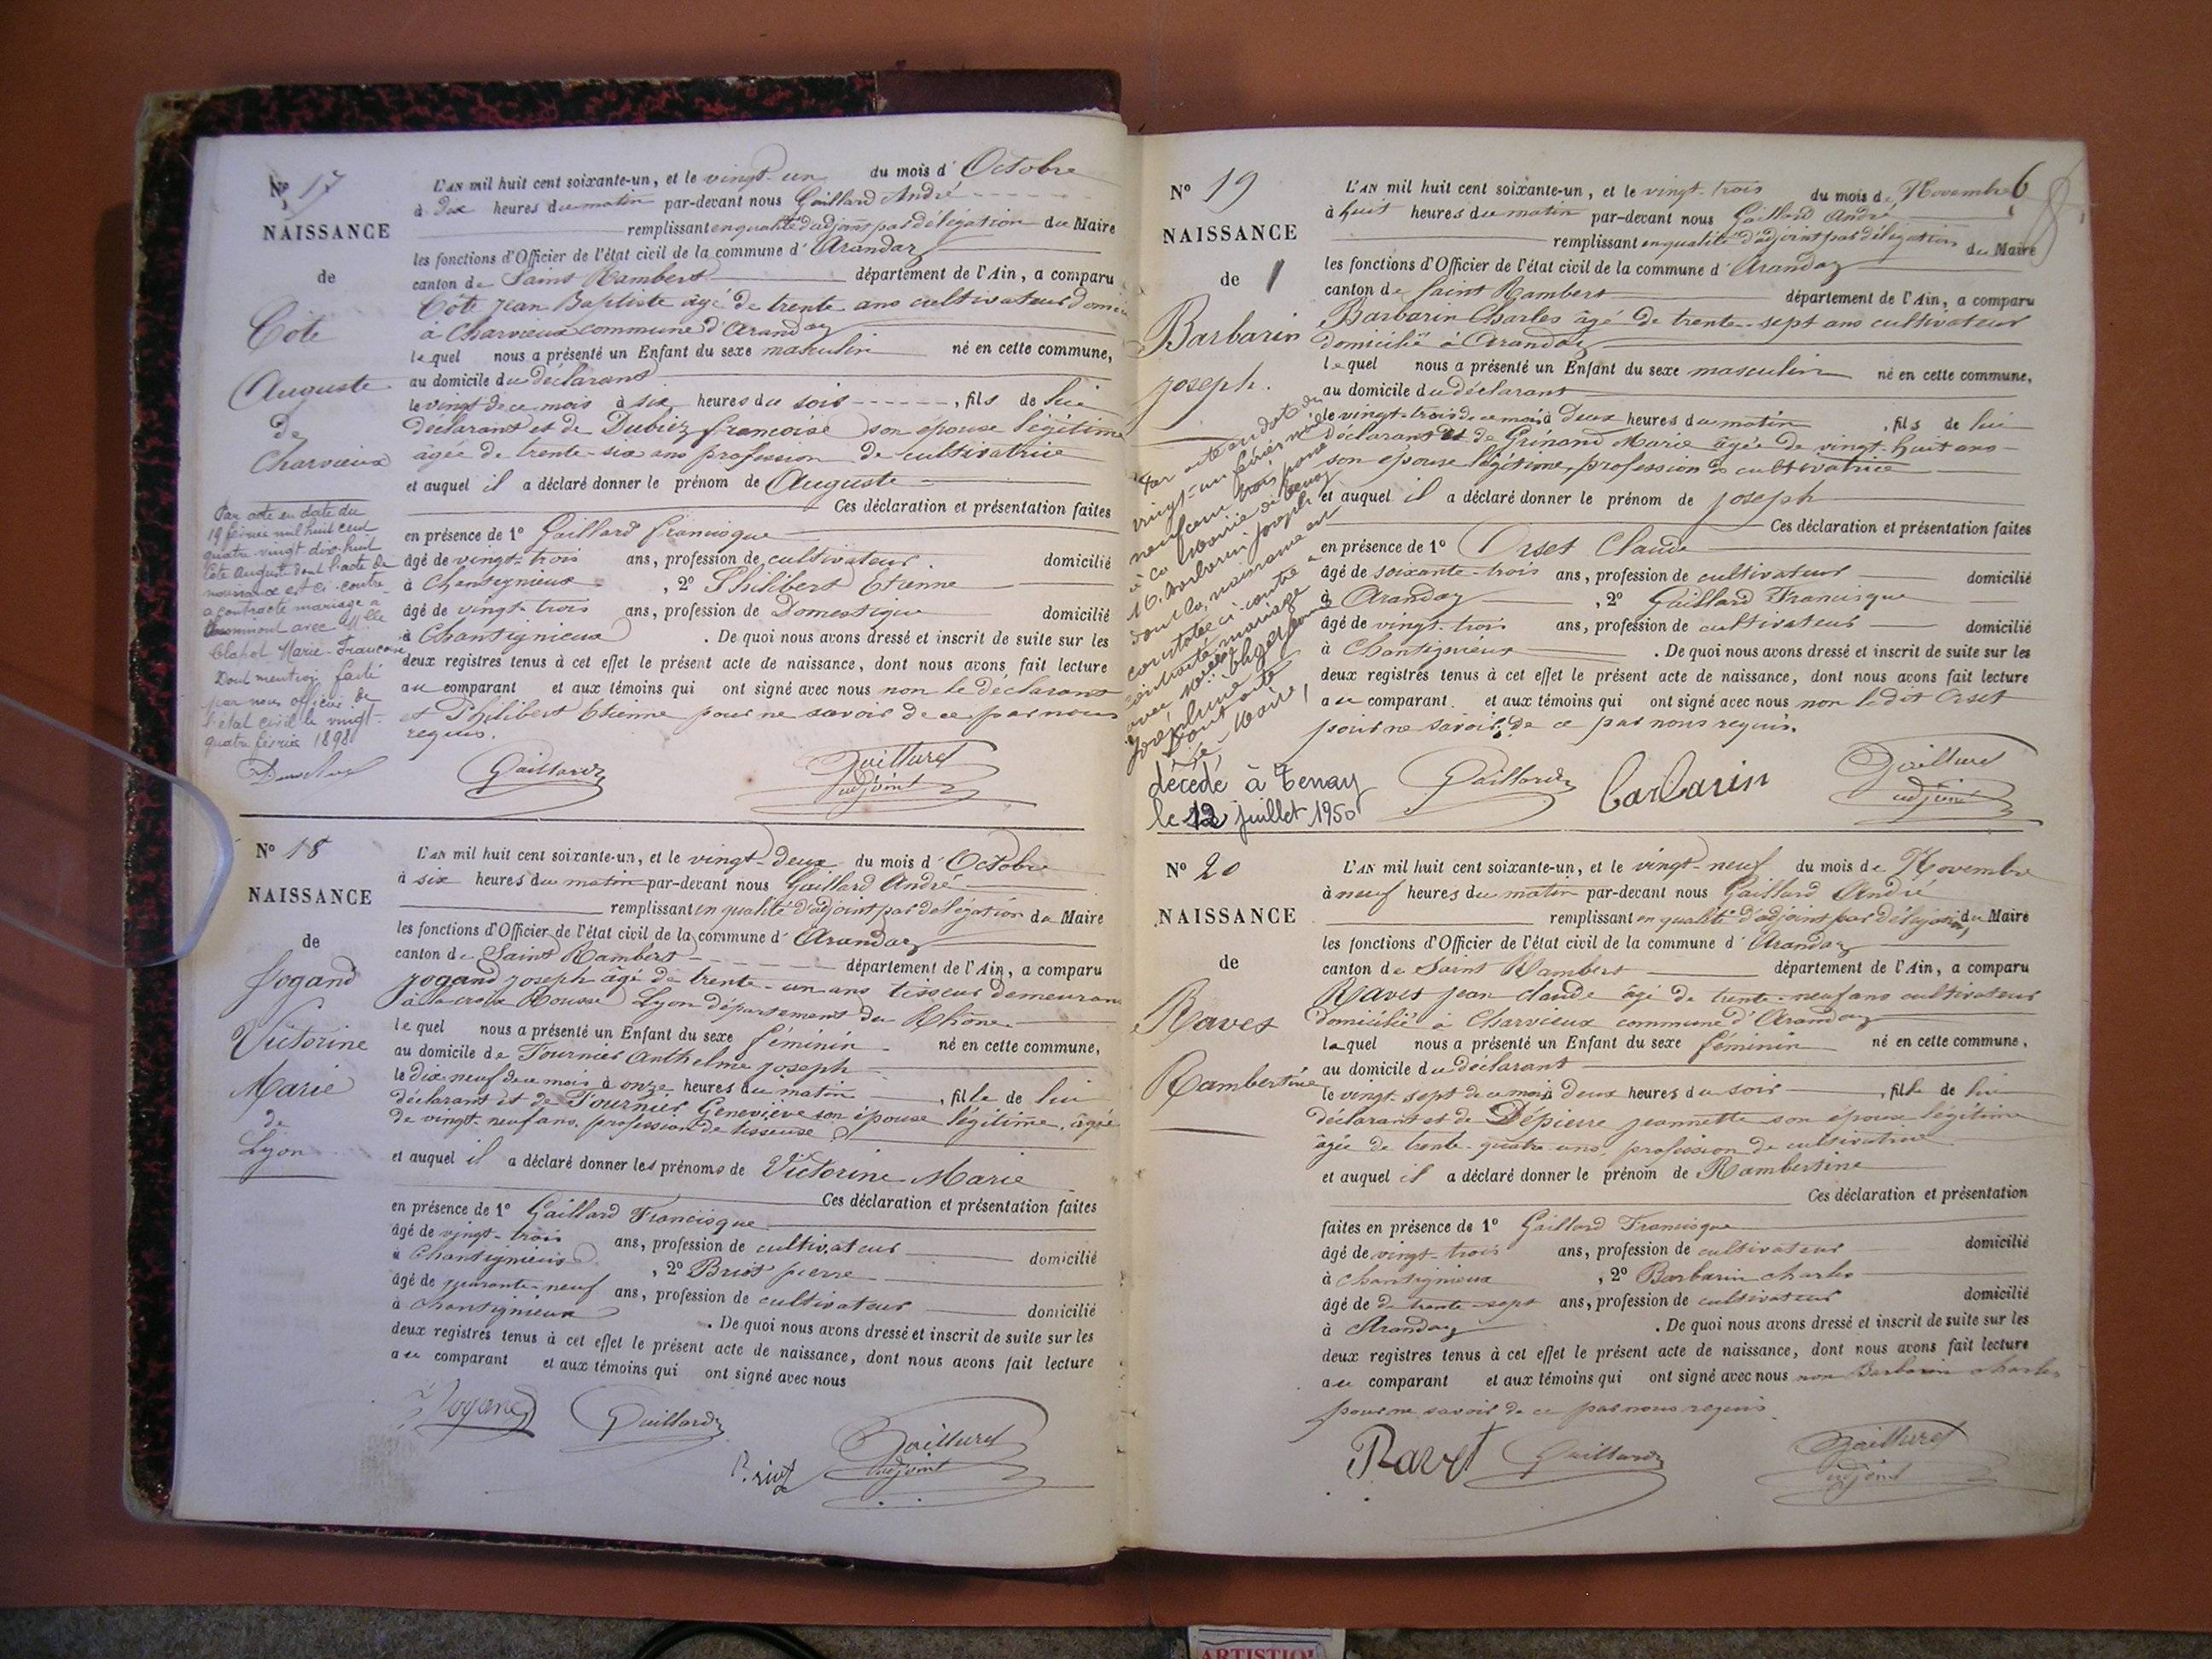 N° 17
NAISSANCE
de
Côte
Auguste
de
Charvieux
Par acte en date du
19 février mil huit cent
quatre vingt dix-huit
Côte Auguste dont l'acte de
naissance est ci-contre
a contracté mariage à
avec Mlle
Clapot Marie-Françoise
Dont mention faite
par nous officier de
l'état civil le vingt-
quatre février 1898
L'AN mil huit cent soixante-un, et le vingt-un du mois d'Octobre
à dix heures du matin par-devant nous Gaillard André
remplissant en qualité d'adjoint par délégation du Maire
les fonctions d'Officier de l'état civil de la commune d'Arandas
canton de Saint Rambert département de l'Ain, a comparu
Côte Jean Baptiste âgé de trente ans cultivateur
à Charvieux commune d'Arandas
lequel nous a présenté un Enfant du sexe masculin né en cette commune,
au domicile du déclarant
le vingt de ce mois à six heures du soir, fils de lui
déclarant et de Dubiez françoise son épouse légitime
âgée de trente-six ans profession de cultivatrice
et auquel il a déclaré donner le prénom de Auguste
Ces déclaration et présentation faites
en présence de 1° Gaillard Francisque
âgé de vingt-trois ans, profession de cultivateur domicilié
à Chantignieux, 2° Philibert Etienne
âgé de vingt-trois ans, profession de Domestique domicilié
à Chantignieux. De quoi nous avons dressé et inscrit de suite sur les
deux registres tenus à cet effet le présent acte de naissance, dont nous avons fait lecture
au comparant et aux témoins qui ont signé avec nous non le déclarant
et Philibert Etienne pour ne savoir de ce par nous
requis.
Gaillard Gaillard
adjoint
N° 18
NAISSANCE
de
Jogand
Victorine
Marie
de
Lyon
L'AN mil huit cent soixante-un, et le vingt-deux du mois d'Octobre
à six heures du matin par-devant nous Gaillard André
remplissant en qualité d'adjoint par délégation du Maire
les fonctions d'Officier de l'état civil de la commune d'Arandas
canton de Saint Rambert département de l'Ain, a comparu
Jogand joseph âgé de trente-un ans tisseur demeurant
à la croix Rousse Lyon département du Rhône
lequel nous a présenté un Enfant du sexe féminin né en cette commune,
au domicile de Tournier Anthelme joseph
le dix neuf de ce mois à onze heures du matin, fille de lui
déclarant et de Tournier Geneviève son épouse légitime, âgée
de vingt-neuf ans, profession de tisseuse
et auquel il a déclaré donner les prénoms de Victorine Marie
Ces déclaration et présentation faites
en présence de 1° Gaillard Francisque
âgé de vingt-trois ans, profession de cultivateur domicilié
à Chantignieux, 2° Briot pierre
âgé de quarante-neuf ans, profession de cultivateur domicilié
à Chantignieux. De quoi nous avons dressé et inscrit de suite sur les
deux registres tenus à cet effet le présent acte de naissance, dont nous avons fait lecture
au comparant et aux témoins qui ont signé avec nous
Jogand Gaillard
Briot Gaillard
adjoint
6
N° 19
NAISSANCE
de 1
Barbarin
joseph.
Par acte en date du
vingt-un février mil
neuf cent trois passé
à la Mairie de Tenay
M. Barbarin joseph
dont la naissance est
constatée ci-contre a
contracté mariage
avec
Joséphine
Dont acte
Le Maire,
décédé à Tenay
le 12 juillet 1950
L'AN mil huit cent soixante-un, et le vingt-trois du mois de Novembre
à huit heures du matin par-devant nous Gaillard André
remplissant en qualité d'adjoint par délégation du Maire
les fonctions d'Officier de l'état civil de la commune d'Arandas
canton de Saint Rambert département de l'Ain, a comparu
Barbarin Charles âgé de trente-sept ans cultivateur
domicilié à Arandas
lequel nous a présenté un Enfant du sexe masculin né en cette commune,
au domicile du déclarant
le vingt-trois de ce mois à deux heures du matin, fils de lui
déclarant et de Grinand Marie âgée de vingt-huit ans
son épouse légitime, profession de cultivatrice
et auquel il a déclaré donner le prénom de joseph
Ces déclaration et présentation faites
en présence de 1° Orset Claude
âgé de soixante-trois ans, profession de cultivateur domicilié
à Arandas, 2° Gaillard Francisque
âgé de vingt-trois ans, profession de cultivateur domicilié
à Chantignieux. De quoi nous avons dressé et inscrit de suite sur les
deux registres tenus à cet effet le présent acte de naissance, dont nous avons fait lecture
au comparant. et aux témoins qui ont signé avec nous non le dit Orset
pour ne savoir de ce par nous requis.
Gaillard Barbarin Gaillard
adjoint
N° 20
NAISSANCE
de
Ravet
Rambertine
L'AN mil huit cent soixante-un, et le vingt-neuf du mois de Novembre
à neuf heures du matin par-devant nous Gaillard André
remplissant en qualité d'adjoint par délégation, du Maire
les fonctions d'Officier de l'état civil de la commune d'Arandas
canton de Saint Rambert département de l'Ain, a comparu
Ravet jean claude âgé de trente-neuf ans cultivateur
domicilié à Charvieux commune d'Arandas
lequel nous a présenté un Enfant du sexe féminin né en cette commune,
au domicile du déclarant
le vingt-sept de ce mois à deux heures du soir, fille de lui
déclarant et de Dépierre jeannette son épouse légitime
âgée de trente-quatre ans, profession de cultivatrice
et auquel il a déclaré donner le prénom de Rambertine
Ces déclaration et présentation
faites en présence de 1° Gaillard Francisque
âgé de vingt-trois ans, profession de cultivateur domicilié
à Chantignieux, 2° Barbarin charles
âgé de de trente-sept ans, profession de cultivateur domicilié
à Arandas. De quoi nous avons dressé et inscrit de suite sur les
deux registres tenus à cet effet le présent acte de naissance, dont nous avons fait lecture
au comparant et aux témoins qui ont signé avec nous non Barbarin charles
pour ne savoir de ce par nous requis.
Ravet Gaillard Gaillard
adjoint